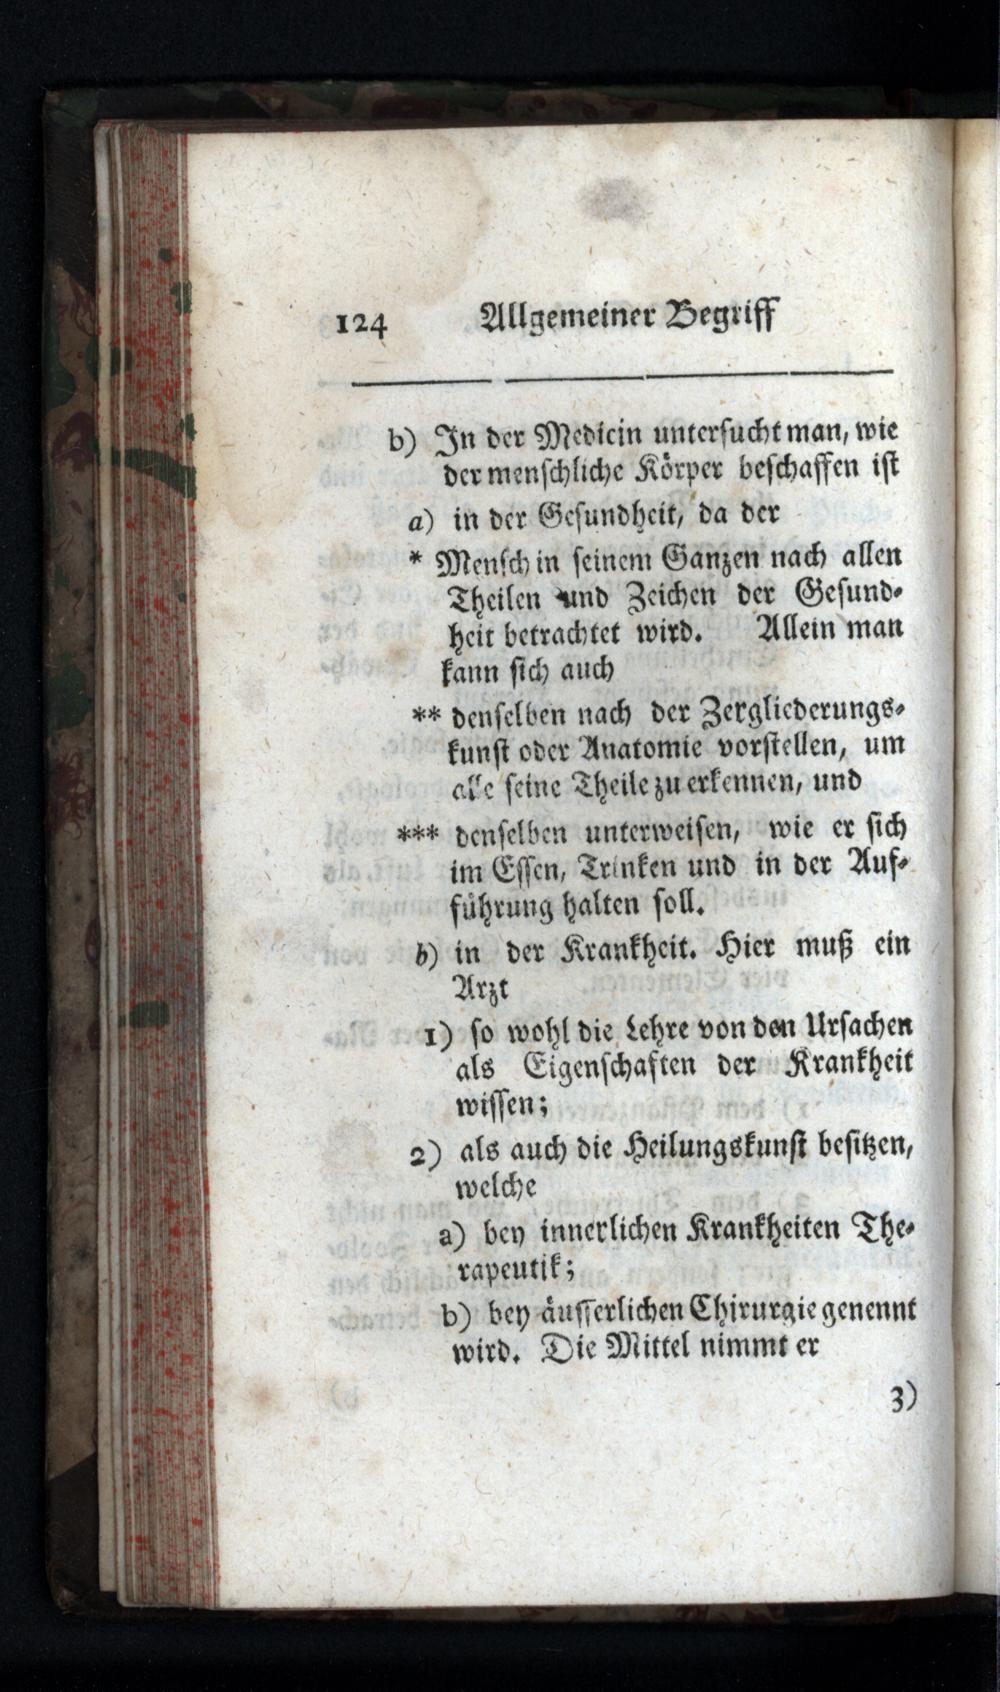 124 Allgemeiner Begriff
b) In der Medicin untersucht man, wie
der menschliche Körper beschaffen ist
a) in der Gesundheit, da der
* Mensch in seinem Ganzen nach allen
Theilen und Zeichen der Gesund-
heit betrachtet wird. Allein man
kann sich auch
** denselben nach der Zergliederungs-
kunst oder Anatomie vorstellen, um
alle seine Theile zu erkennen, und
*** denselben unterweisen, wie er sich
im Essen, Trinken und in der Auf-
führung halten soll.
b) in der Krankheit. Hier muß ein
Arzt
1) so wohl die Lehre von den Ursachen
als Eigenschaften der Krankheit
wissen;
2) als auch die Heilungskunst besitzen,
welche
a) bey innerlichen Krankheiten The-
rapeutik;
b) bey äusserlichen Chirurgie genennt
wird. Die Mittel nimmt er
3)